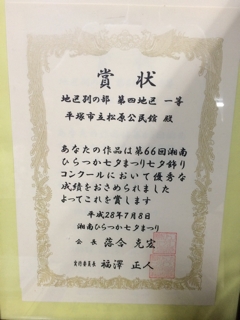 賞状
地区別の部 第四地区 一等
平塚市立松原公民館 殿
あなたの作品は第66回湘南
ひらつか七夕まつり七夕飾り
コンクールにおいて優秀な
成績をおさめられました
よってこれを賞します
平成28年7月8日
湘南ひらつか七夕まつり
会長 落合克宏
実行委員長 福澤正人